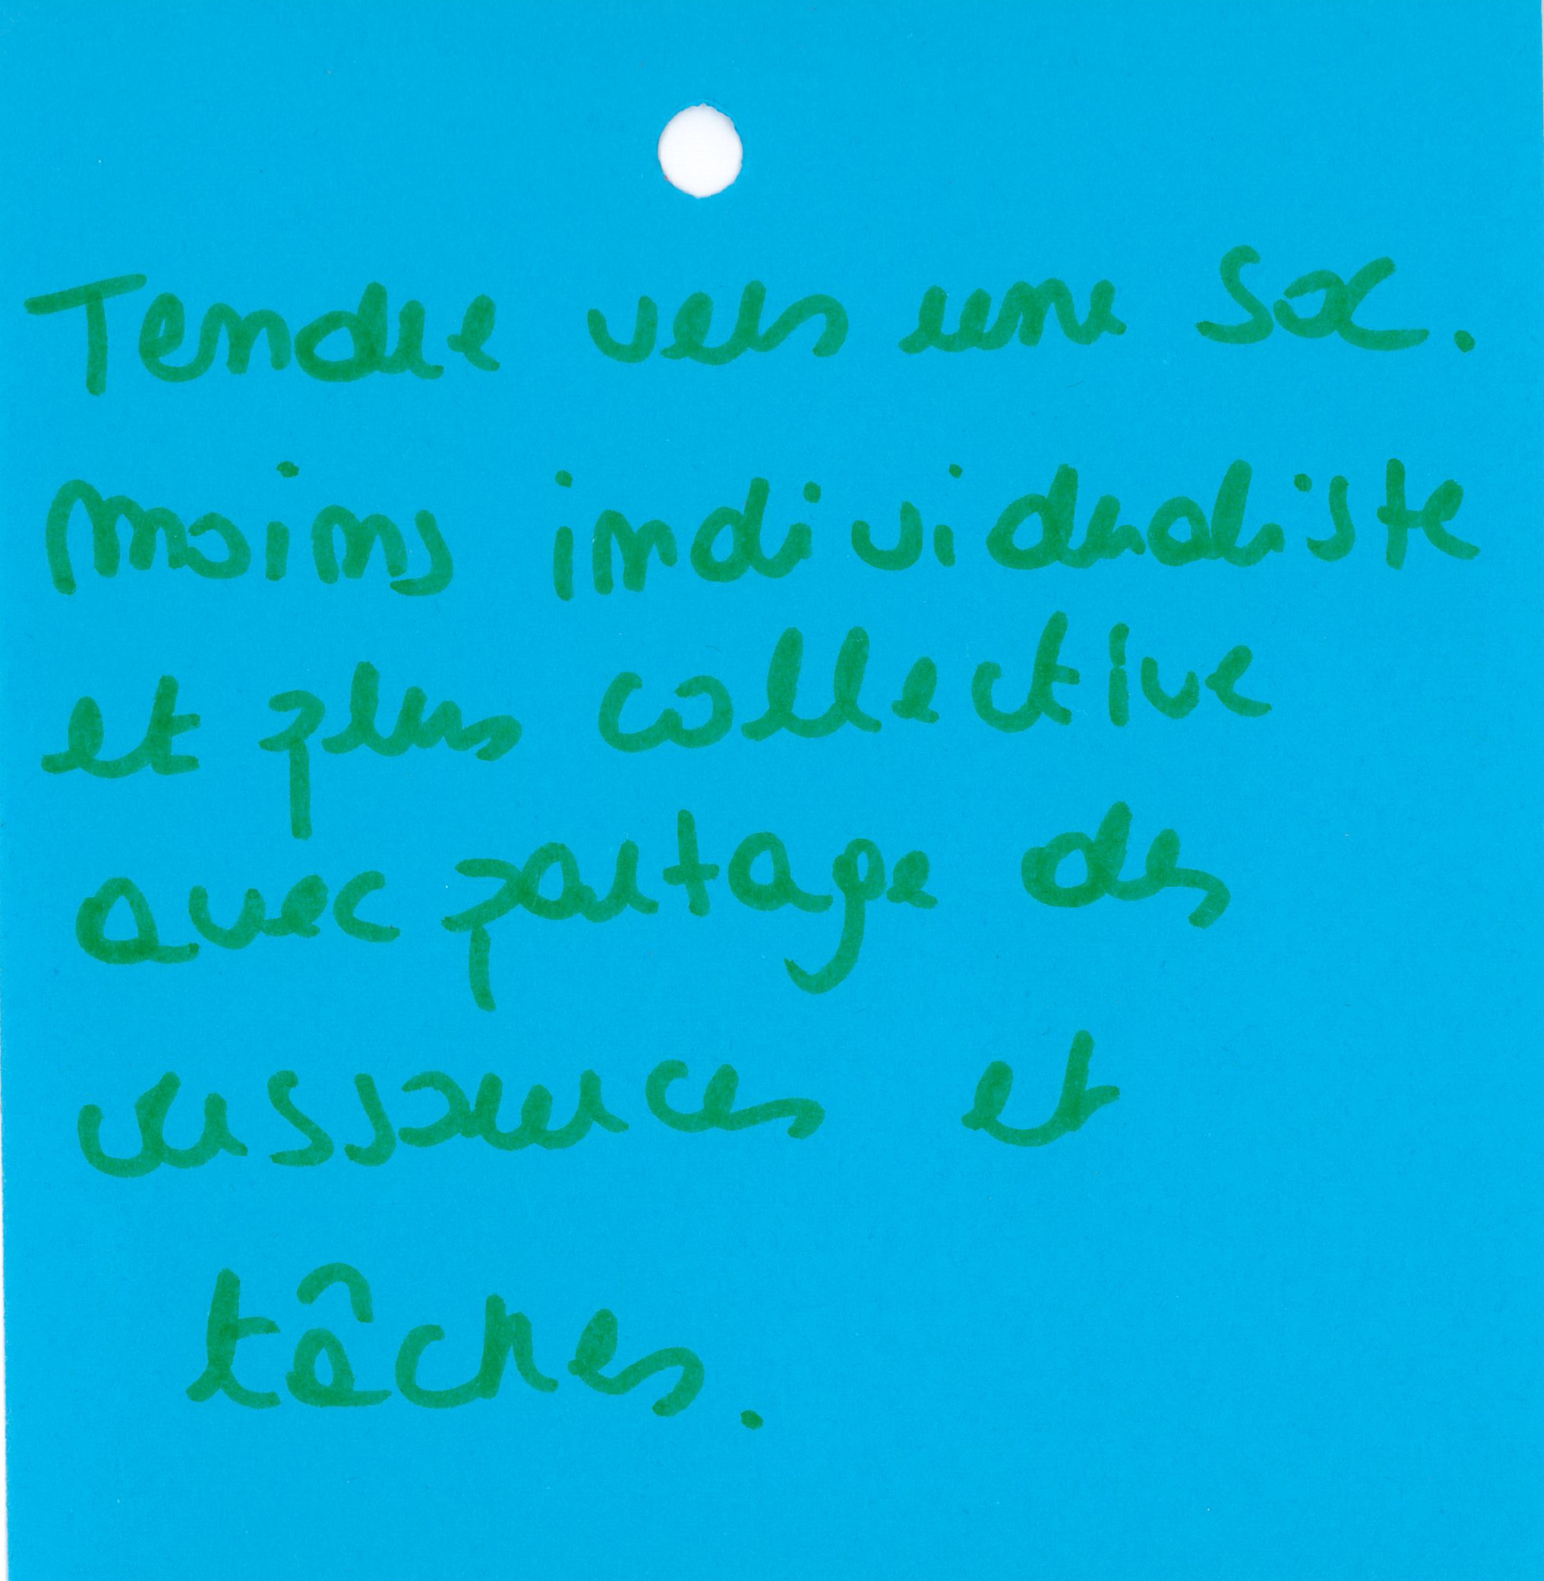 Tendre vers une Soc.
moins individualiste
et plus collective
avec partage des
ressources et
tâches.